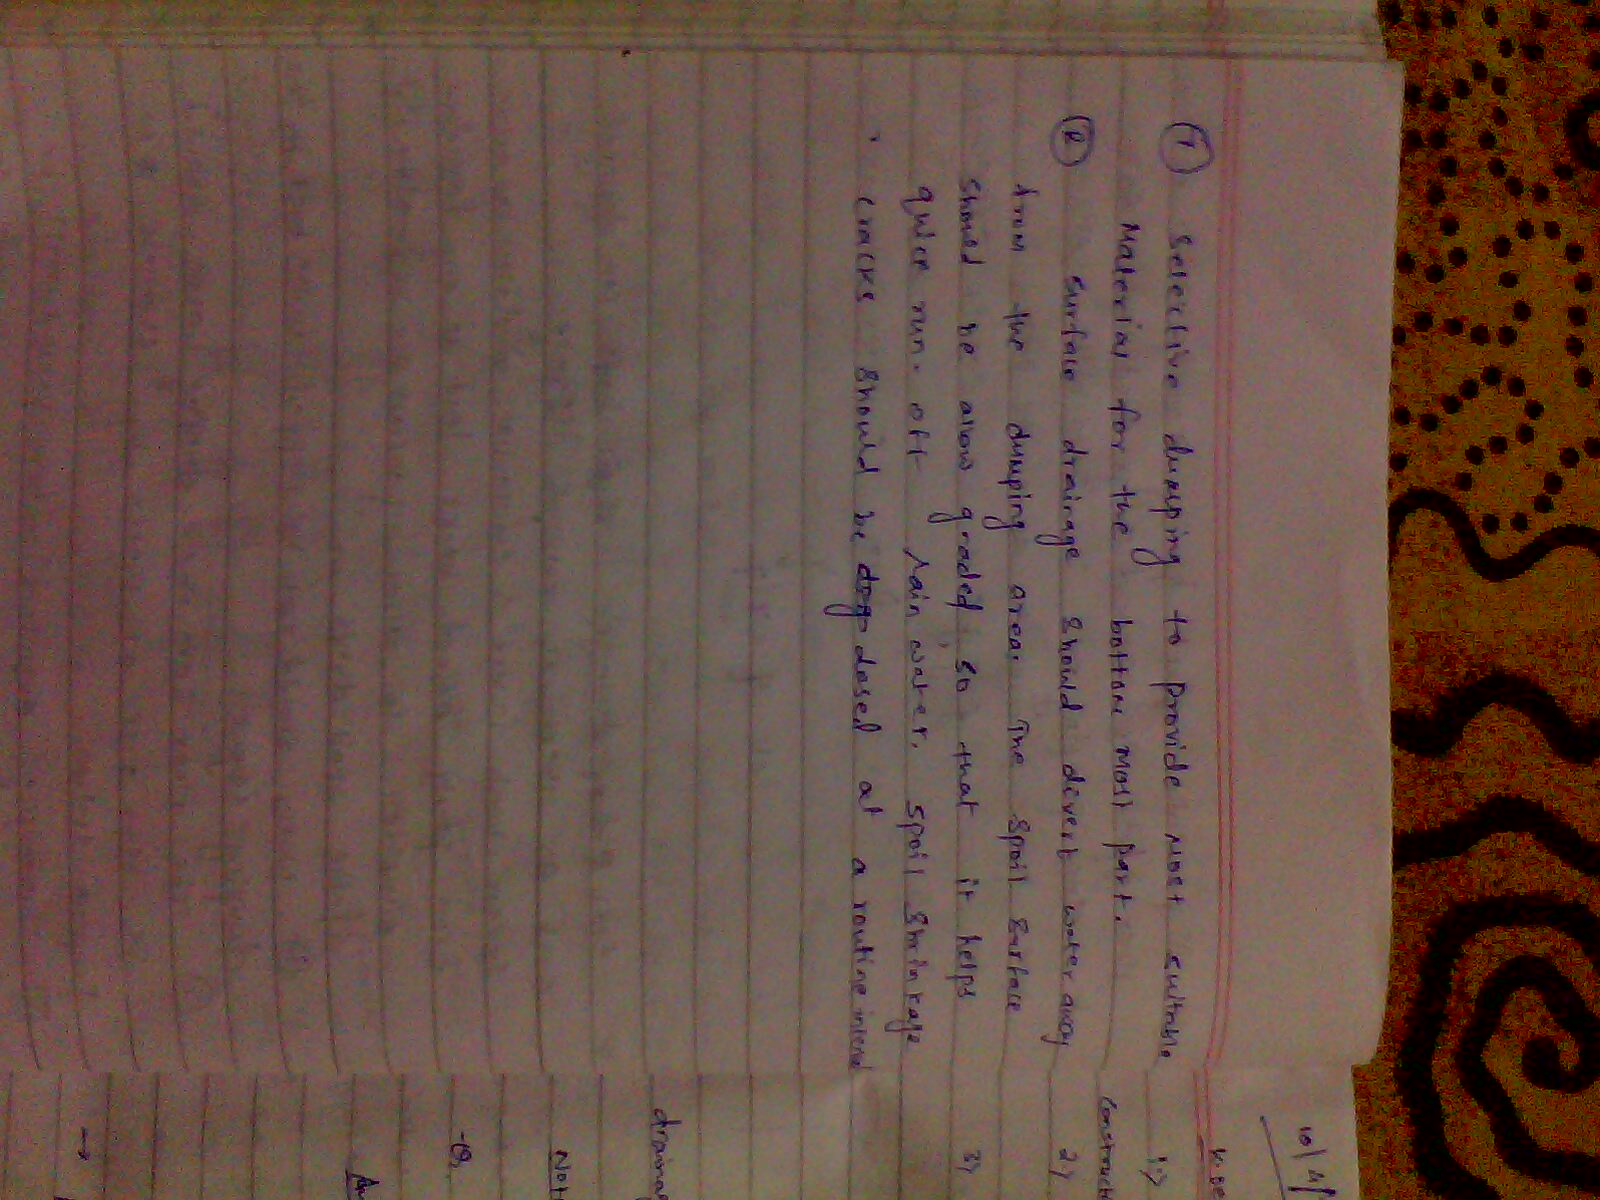 ① Selective dumping to provide most suitable
Material for the bottom most part.
② surface drainage should divert water away
from the dumping area. The spoil surface
should be allow graded so that it helps
quick run-off rain water. spoil shrinkage
cracks should be closed at a routine
10/11/
1>
Construct
2>
3>
drainag
Not
-Q,
→